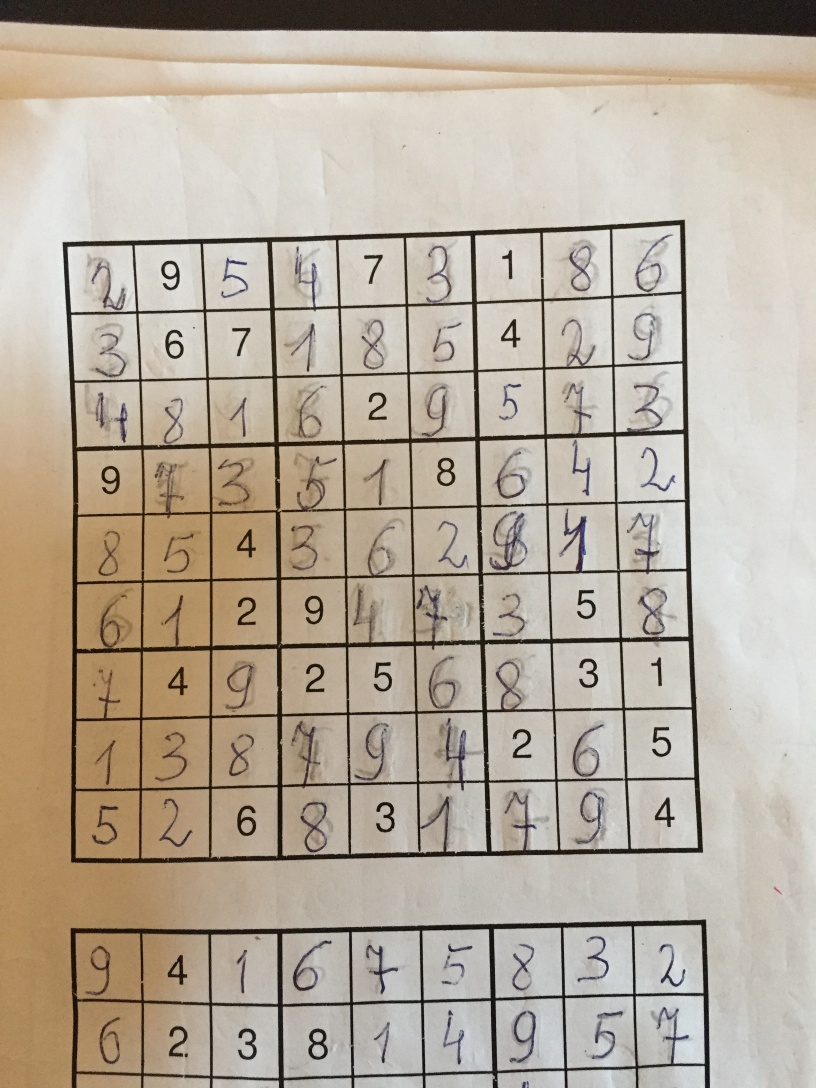 2 9 5 4 7 3 1 8 6
3 6 7 1 8 5 4 2 9
4 8 1 6 2 9 5 7 3
9 7 3 5 1 8 6 4 2
8 5 4 3 6 2 9 1 7
6 1 2 9 4 7 3 5 8
7 4 9 2 5 6 8 3 1
1 3 8 7 9 4 2 6 5
5 2 6 8 3 1 7 9 4
9 4 1 6 7 5 8 3 2
6 2 3 8 1 4 9 5 7